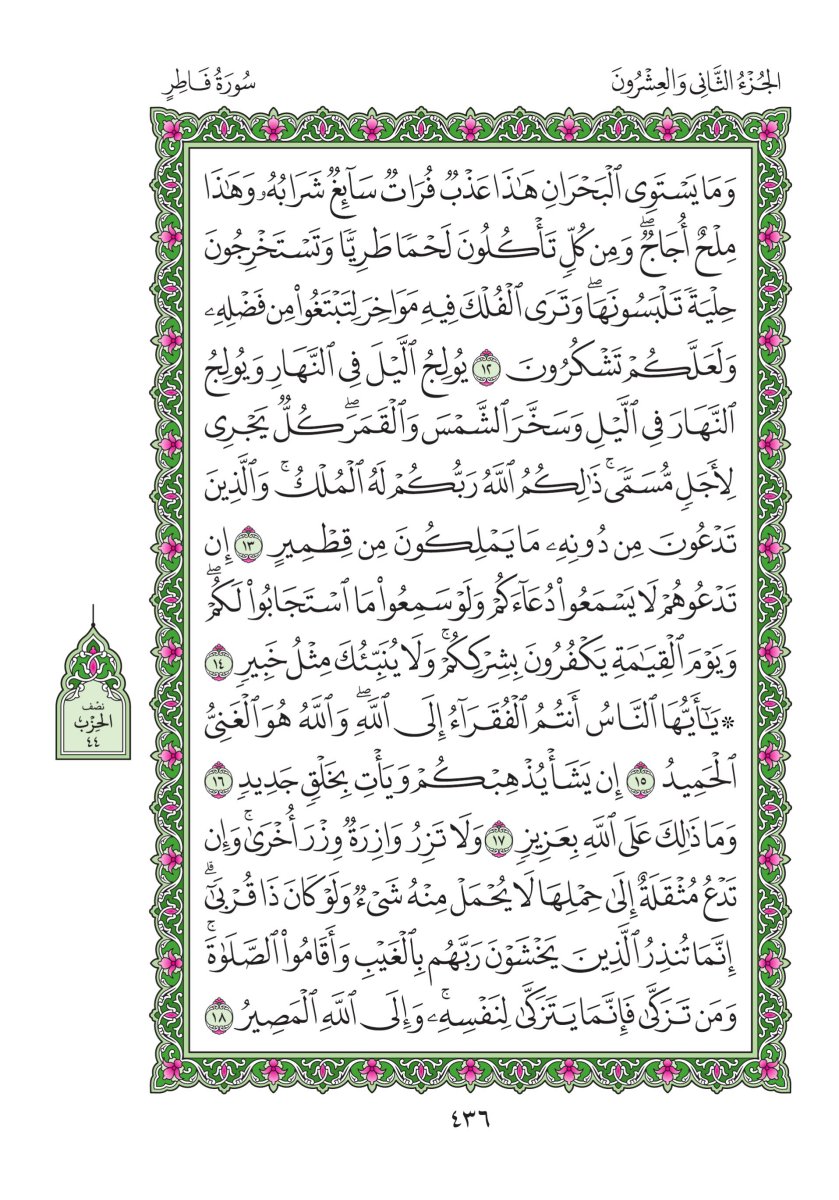 الجُزْءُ الثَّانِي وَالعِشْرُونَ
سُورَةُ فَاطِرٍ
وَمَا يَسۡتَوِي ٱلۡبَحۡرَانِ هَٰذَا عَذۡبٞ فُرَاتٞ سَآئِغٞ شَرَابُهُۥ وَهَٰذَا
مِلۡحٌ أُجَاجٞۖ وَمِن كُلّٖ تَأۡكُلُونَ لَحۡمٗا طَرِيّٗا وَتَسۡتَخۡرِجُونَ
حِلۡيَةٗ تَلۡبَسُونَهَاۖ وَتَرَى ٱلۡفُلۡكَ فِيهِ مَوَاخِرَ لِتَبۡتَغُواْ مِن فَضۡلِهِۦ
وَلَعَلَّكُمۡ تَشۡكُرُونَ ١٢ يُولِجُ ٱلَّيۡلَ فِي ٱلنَّهَارِ وَيُولِجُ
ٱلنَّهَارَ فِي ٱلَّيۡلِ وَسَخَّرَ ٱلشَّمۡسَ وَٱلۡقَمَرَۖ كُلّٞ يَجۡرِي
لِأَجَلٖ مُّسَمّٗىۚ ذَٰلِكُمُ ٱللَّهُ رَبُّكُمۡ لَهُ ٱلۡمُلۡكُۚ وَٱلَّذِينَ
تَدۡعُونَ مِن دُونِهِۦ مَا يَمۡلِكُونَ مِن قِطۡمِيرٍ ١٣ إِن
تَدۡعُوهُمۡ لَا يَسۡمَعُواْ دُعَآءَكُمۡ وَلَوۡ سَمِعُواْ مَا ٱسۡتَجَابُواْ لَكُمۡۖ
وَيَوۡمَ ٱلۡقِيَٰمَةِ يَكۡفُرُونَ بِشِرۡكِكُمۡۚ وَلَا يُنَبِّئُكَ مِثۡلُ خَبِيرٖ ١٤
۞ يَٰٓأَيُّهَا ٱلنَّاسُ أَنتُمُ ٱلۡفُقَرَآءُ إِلَى ٱللَّهِۖ وَٱللَّهُ هُوَ ٱلۡغَنِيُّ
ٱلۡحَمِيدُ ١٥ إِن يَشَأۡ يُذۡهِبۡكُمۡ وَيَأۡتِ بِخَلۡقٖ جَدِيدٖ ١٦
وَمَا ذَٰلِكَ عَلَى ٱللَّهِ بِعَزِيزٖ ١٧ وَلَا تَزِرُ وَازِرَةٞ وِزۡرَ أُخۡرَىٰۚ وَإِن
تَدۡعُ مُثۡقَلَةٌ إِلَىٰ حِمۡلِهَا لَا يُحۡمَلۡ مِنۡهُ شَيۡءٞ وَلَوۡ كَانَ ذَا قُرۡبَىٰٓۗ
إِنَّمَا تُنذِرُ ٱلَّذِينَ يَخۡشَوۡنَ رَبَّهُم بِٱلۡغَيۡبِ وَأَقَامُواْ ٱلصَّلَوٰةَۚ
وَمَن تَزَكَّىٰ فَإِنَّمَا يَتَزَكَّىٰ لِنَفۡسِهِۦۚ وَإِلَى ٱللَّهِ ٱلۡمَصِيرُ ١٨
نصف
الحِزْب
٤٤
٤٣٦